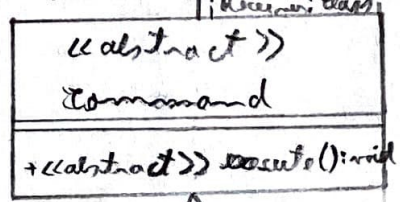 <<abstract>>
Command
+<<abstract>> execute():void